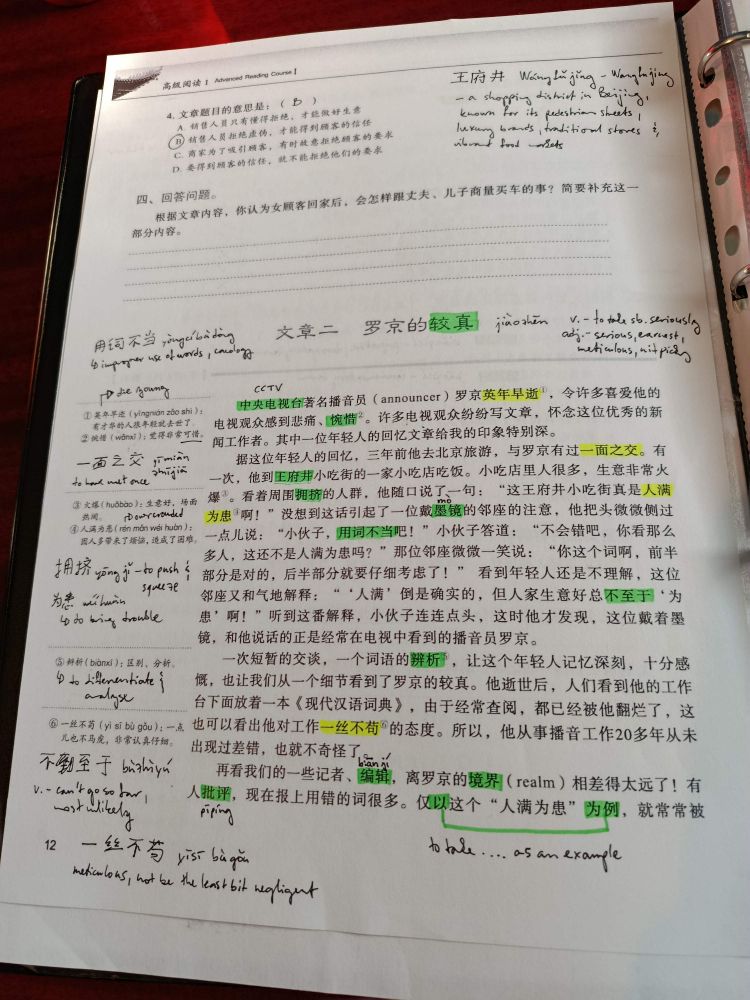 高级阅读 I Advanced Reading Course I
王府井 Wángfǔjǐng – Wangfujing
– a shopping district in Beijing,
known for its pedestrian streets,
luxury brands, traditional stores &
vibrant food markets
4. 文章题目的意思是：（ B ）
A. 销售人员只有懂得拒绝，才能做好生意
B. 销售人员拒绝虚伪，才能得到顾客的信任
C. 商家为了吸引顾客，有时故意拒绝顾客的要求
D. 要得到顾客的信任，就不能拒绝他们的要求
四、回答问题。
根据文章内容，你认为女顾客回家后，会怎样跟丈夫、儿子商量买车的事？简要补充这一
部分内容。
用词不当 yòngcí bùdàng
↳ improper use of words, cacology
文章二 罗京的较真 jiàozhēn
v. – to take sb. seriously
adj. – serious, earnest,
meticulous, nitpicky
↱ die young
① 英年早逝（yīngnián zǎo shì）：
有才华的人很年轻就去世了。
② 惋惜（wǎnxī）：觉得非常可惜。
一面之交 yīmiàn
zhījiāo
to have met once
③ 火爆（huǒbào）：生意好，场面
热闹。
↱ overcrowded
④ 人满为患（rén mǎn wéi huàn）：
因人多带来了烦恼，造成了困难。
拥挤 yōngjǐ – to push &
squeeze
为患 wéihuàn
↳ to bring trouble
⑤ 辨析（biànxī）：区别、分析。
↳ to differentiate &
analyse
⑥ 一丝不苟（yì sī bù gǒu）：一点
儿也不马虎，非常认真仔细。
不至于 bùzhìyú
v. – can't go so far,
most unlikely
CCTV
中央电视台著名播音员（announcer）罗京英年早逝①，令许多喜爱他的
电视观众感到悲痛、惋惜②。许多电视观众纷纷写文章，怀念这位优秀的新
闻工作者。其中一位年轻人的回忆文章给我的印象特别深。
据这位年轻人的回忆，三年前他去北京旅游，与罗京有过一面之交。有
一次，他到王府井小吃街的一家小吃店吃饭。小吃店里人很多，生意非常火
爆③。看着周围拥挤的人群，他随口说了一句：“这王府井小吃街真是人满
为患④啊！”没想到这话引起了一位戴墨镜的邻座的注意，他把头微微侧过
mò
一点儿说：“小伙子，用词不当吧！”小伙子答道：“不会错吧，你看那么
多人，这还不是人满为患吗？”那位邻座微微一笑说：“你这个词啊，前半
部分是对的，后半部分就要仔细考虑了！” 看到年轻人还是不理解，这位
邻座又和气地解释：“‘人满’倒是确实的，但人家生意好总不至于‘为
患’啊！”听到这番解释，小伙子连连点头，这时他才发现，这位戴着墨
镜，和他说话的正是经常在电视中看到的播音员罗京。
一次短暂的交谈，一个词语的辨析⑤，让这个年轻人记忆深刻，十分感
慨，也让我们从一个细节看到了罗京的较真。他逝世后，人们看到他的工作
台下面放着一本《现代汉语词典》，由于经常查阅，都已经被他翻烂了，这
也可以看出他对工作一丝不苟⑥的态度。所以，他从事播音工作20多年从未
出现过差错，也就不奇怪了。
biānjí
再看我们的一些记者、编辑，离罗京的境界（realm）相差得太远了！有
人批评，现在报上用错的词很多。仅以这个“人满为患”为例，就常常被
pīpíng
to take .... as an example
12
一丝不苟 yīsī bùgǒu
meticulous, not be the least bit negligent